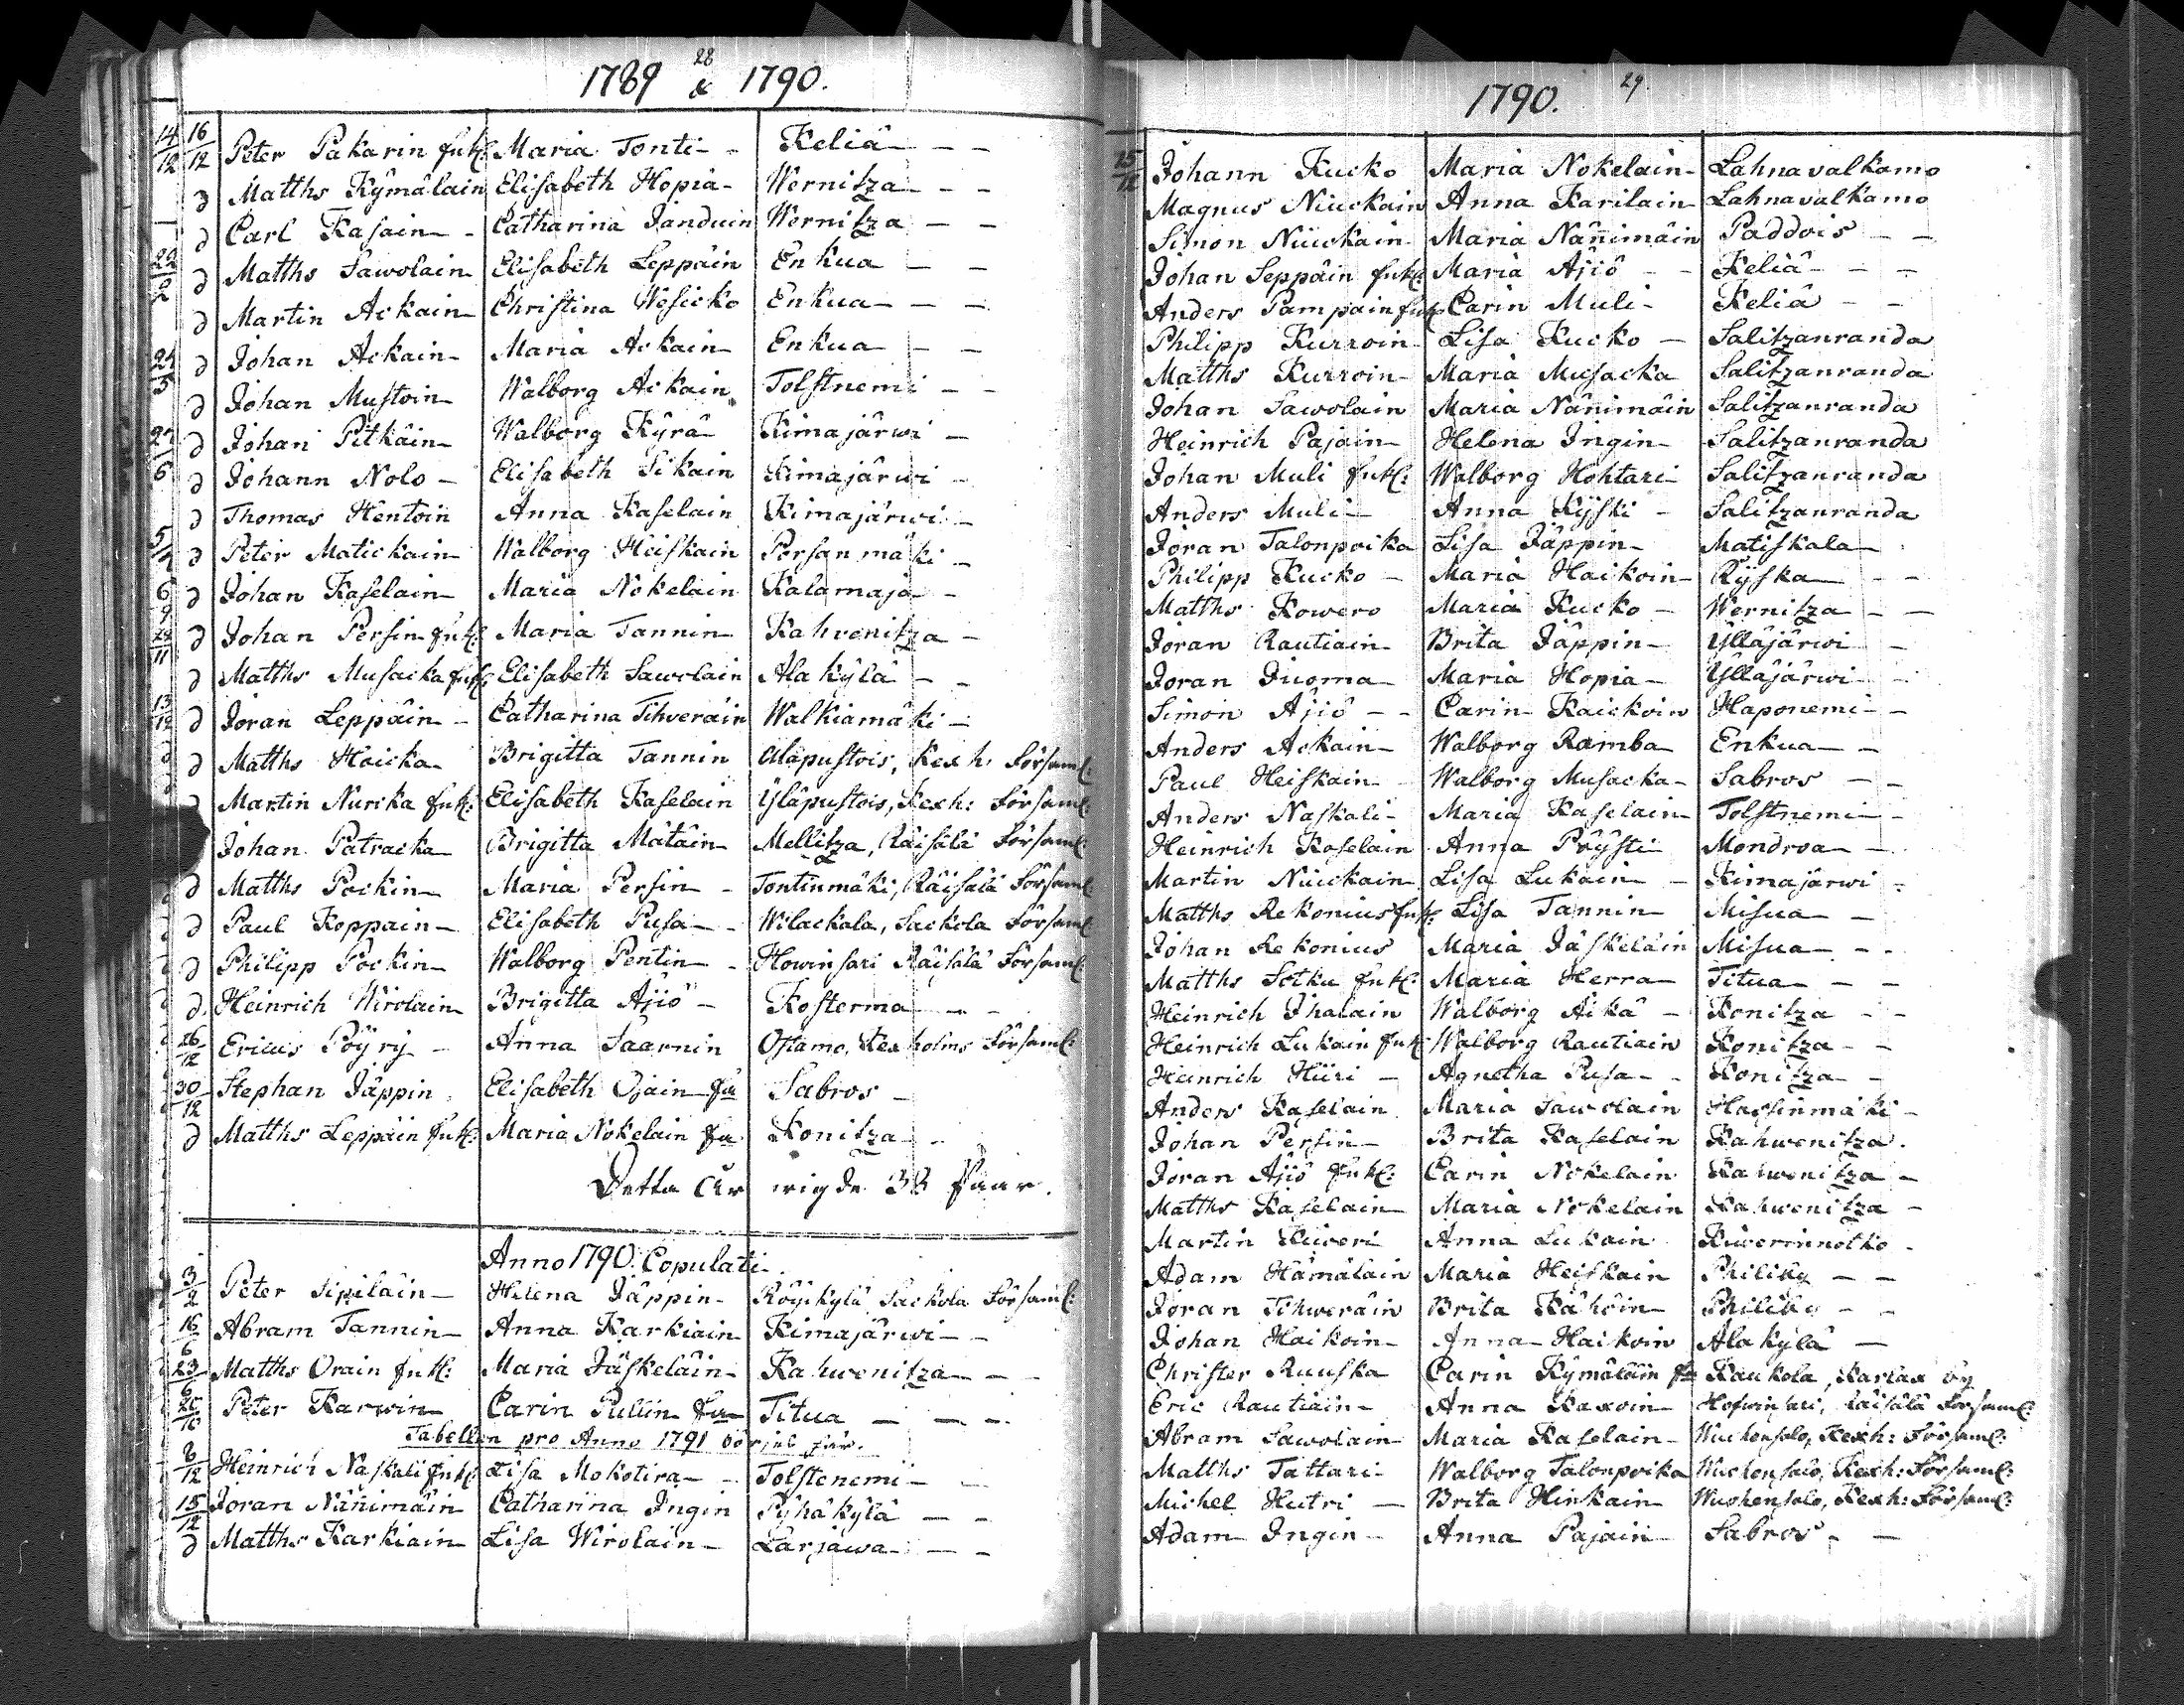 28
1789 & 1790.
14/12 16/12 Peter Pakarin Enkl: Maria Tonti - Keliä - -
d Matths Kymäläin Elisabeth Hopia - Wernitza - -
d Carl Kasain - Catharina Janduin Wernitza - -
d Matths Sawolain Elisabeth Leppäin Enkua - -
d Martin Ackain - Christina Wesicko Enkua - -
d Johan Ackain - Maria Ackain - Enkua - -
d Johan Mustoin - Walborg Ackain Tolstnemi - -
d Johan Pitkäin - Walborg Kyrä - Kimajärwi -
d Johann Nolo - Elisabeth Sikain Kimajärwi -
d Thomas Hentoin Anna Kaselain Kimajärwi -
d Peter Matickain - Walborg Heiskain Porsanmäki -
d Johan Kaselain - Maria Nokelain Kalamaja -
d Johan Persin Enkl: Maria Tannin - Kahvenitza -
d Matths Musacka Enkl: Elisabeth Sawolain Alakylä - -
13/12 d Joran Leppäin - Catharina Tihveräin Walkiamäki -
d Matths Haicka - Brigitta Tannin Alapustois, Kexh: Församl:
d Martin Nurcka Enkl: Elisabeth Kaselain Yläpustois, Kexh: Församl:
Johan Patracka Brigitta Mätäin - Mellitza, Räisälä Församl:
d Matths Pockin - Maria Persin - Tontinmäki, Räisälä Församl:
d Paul Koppain - Elisabeth Pusa - Wilackala, Sackola Församl:
d Philipp Pockin - Walborg Pentin - Howinsari Räisälä Församl:
d. Heinrich Wirolain Brigitta Äjiö - Kosterma - -
26/12 Ericus Pöyry - Anna Saarnin Ostamo, Kexholms Församl:
30/12 Stephan Jäppin Elisabeth Ojain Ea Sabros -
d Matths Leppäin Enkl: Maria Nokelain Ea Konitza -
Detta År wigde 38 Paar.
Anno 1790. Copulati.
3/2 Peter Sipiläin - Helena Jäppin - Röyikylä Sackola Församl:
16/6 Abram Tannin - Anna Karkiain Kimajärwi -
23/6 Matths Orain Enkl: Maria Jäskeläin - Kahwenitza - -
Peter Karwin - Carin Pullin Ea Titua - - -
Tabellen pro Anno 1791 börjas här.
8/12 Heinrich Naskali Enkl: Lisa Mokotira - Tolstenemi -
15/12 Joran Nänimäin Catharina Ingin Pyhäkylä - -
d Matths Karkiain Lisa Wirolain - Larjawa - -
29
1790.
15/12 Johann Kucko Maria Nokelain - Lahnavalkamo
Magnus Niuckain Anna Karilain Lahnavalkamo
Simon Niuckain Maria Nänimäin Paddois - -
Johan Seppäin Enkl: Maria Äjiö - Keliä - -
Anders Pampain Enkl: Carin Muli - Keliä - -
Philipp Kurroin Lisa Kucko - Salitzanranda
Matths Kurroin - Maria Musacka Salitzanranda
Johan Sawolain Maria Nänimäin Salitzanranda
Heinrich Pajain - Helena Ingin - Salitzanranda
Johan Muli Enkl: Walborg Hohtari Salitzanranda
Anders Muli - Anna Ryski - Salitzanranda
Joran Talonpoika Lisa Jäppin - Matiskala -
Philipp Kucko - Maria Haikoin - Ryska - -
Matths Kowero Maria Kucko - Wernitza - -
Joran Rautiain - Brita Jäppin - Ylläjärwi -
Joran Juoma - Maria Hopia - Ylläjärwi -
Simon Äjiö - - Carin Kaickoin Haponemi -
Anders Ackain - Walborg Ramba Enkua - -
Paul Heiskain - Walborg Musacka - Sabros - -
Anders Naskali - Maria Kaselain - Tolstnemi -
Heinrich Kaselain Anna Pöysti Mondroa -
Martin Niuckain Lisa Lukain - Kimajärwi -
Matths Rekonius Enkl: Lisa Tannin Misua - -
Johan Rekonius Maria Jäskeläin Misua - -
Matths Sotku Enkl: Maria Herra - Titua - -
Heinrich Ihalain Walborg Äikä - Konitza - -
Heinrich Lukain Enkl: Walborg Rautiain Konitza - -
Heinrich Hiiri - Agnetha Pusa - Konitza -
Anders Kaselain Maria Sawolain Hassinmäki -
Johan Persin - Brita Kaselain Kahwenitza.
Joran Äjiö Enkl: Carin Nokelain Kahwenitza -
Matths Kaselain Maria Nokelain Kahwenitza -
Martin Kiweri Anna Lukain Kiwerinnotko -
Adam Hämäläin Maria Heiskain Philiby - -
Joran Tihweräin Brita Kähöin - Philiby - -
Johan Haikoin - Anna Haikoin Alakylä -
Christer Ruuska Carin Kymäläin Ea Kaukola, Karlax by
Eric Rautiain - Anna Kaxoin - Hofwinsari, Räisälä Församl:
Abram Sawolain Maria Kaselain - Wuohensalo, Kexh: Församl:
Matths Tattari - Walborg Talonpoika Wuohensalo, Kexh: Församl:
Michel Hutri - Brita Hinkain Wuohensalo, Kexh: Församl:
Adam Ingin - Anna Pajain - Sabros - -